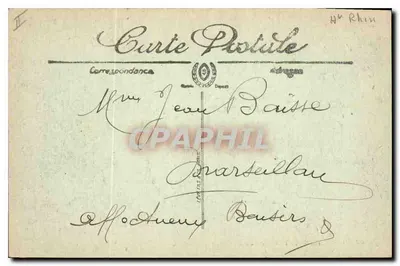 II
Hte Rhin
Carte Postale
Correspondance
Adresse
Mme Jean Baïsse
CPAPHIL.COM
Marseillan
Affectueux Baisers